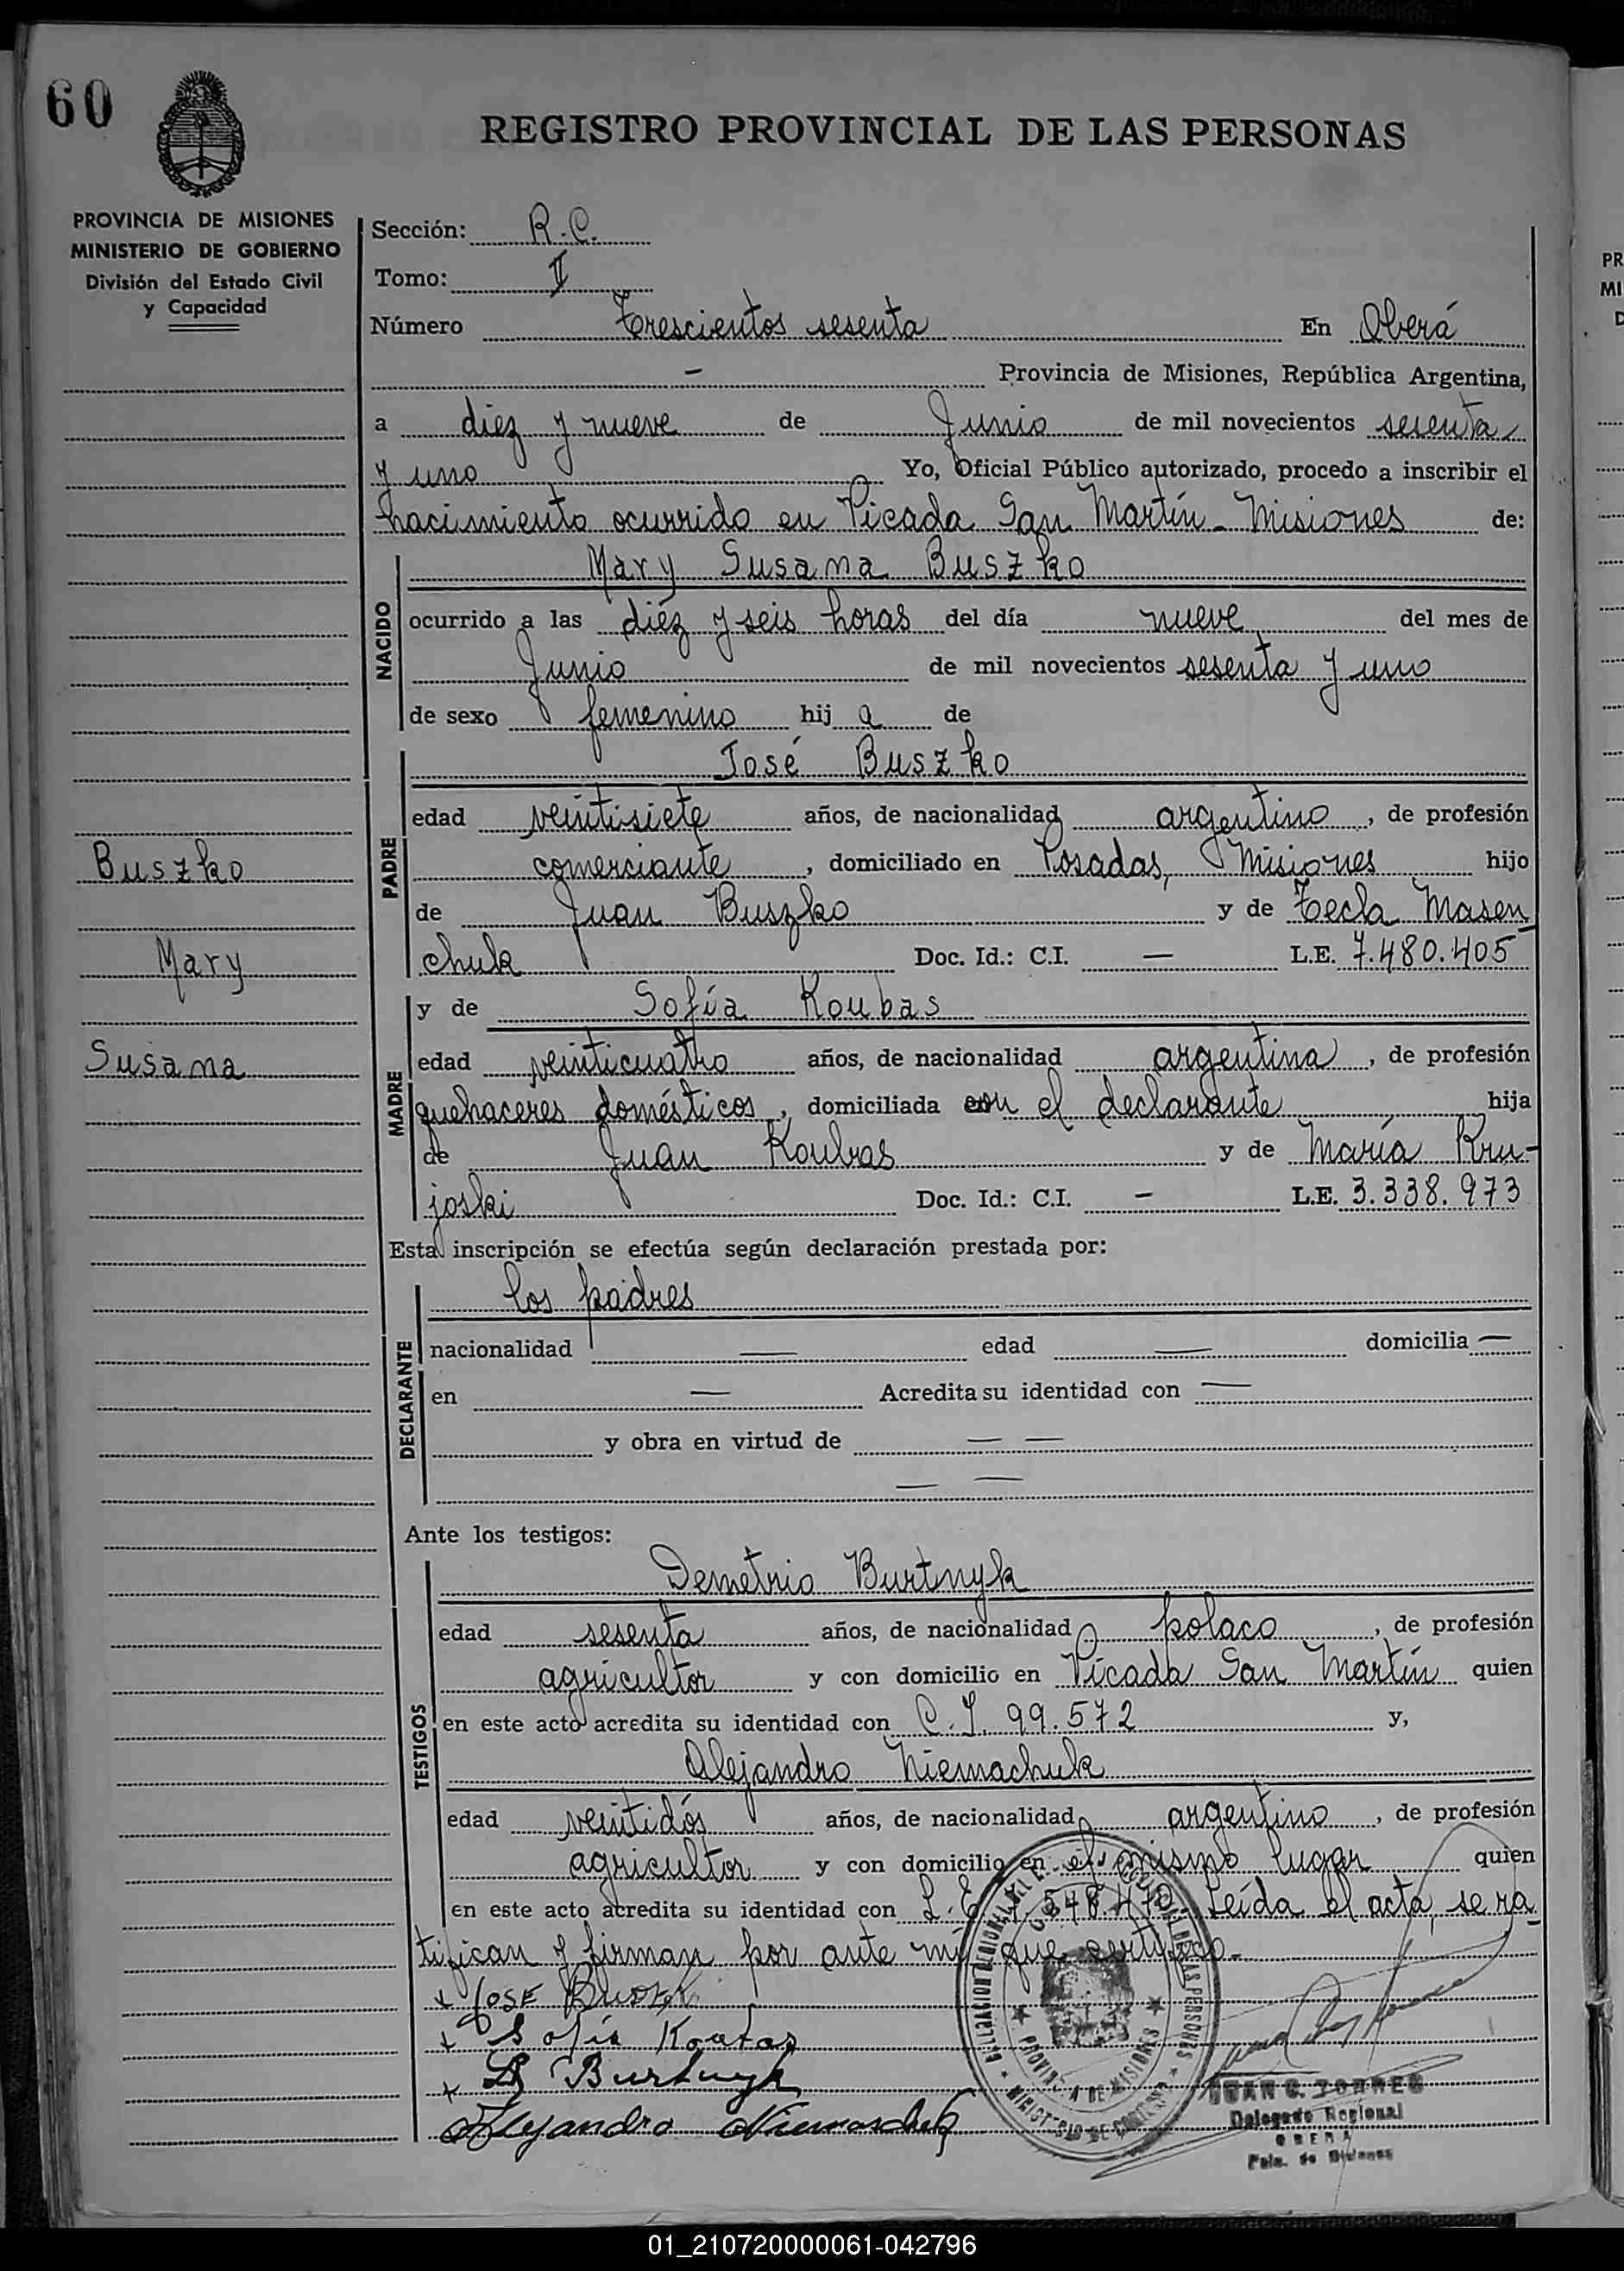 60
REGISTRO PROVINCIAL DE LAS PERSONAS
PROVINCIA DE MISIONES
MINISTERIO DE GOBIERNO
División del Estado Civil
y Capacidad
Sección: R.C.
Tomo: II
Número Trescientos sesenta En Oberá
— Provincia de Misiones, República Argentina,
a diez y nueve de Junio de mil novecientos sesenta
y uno Yo, Oficial Público autorizado, procedo a inscribir el
nacimiento ocurrido en Picada San Martín - Misiones de:
NACIDO
Mary Susana Buszko
ocurrido a las diez y seis horas del día nueve del mes de
Junio de mil novecientos sesenta y uno
de sexo femenino hij a de
PADRE
José Buszko
edad veintisiete años, de nacionalidad argentino, de profesión
comerciante, domiciliado en Posadas, Misiones hijo
de Juan Buszko y de Tecla Masen
chuk Doc. Id.: C.I. — L.E. 7.480.405
Buszko
Mary
Susana
MADRE
y de Sofía Koubas
edad veinticuatro años, de nacionalidad argentina, de profesión
quehaceres domésticos, domiciliada con el declarante hija
de Juan Koubas y de María Kru-
joski Doc. Id.: C.I. — L.E. 3.338.973
Esta inscripción se efectúa según declaración prestada por:
DECLARANTE
los padres
nacionalidad — edad — domicilia —
en — Acredita su identidad con —
y obra en virtud de — —
— —
Ante los testigos:
TESTIGOS
Demetrio Burtnyk
edad sesenta años, de nacionalidad polaco, de profesión
agricultor y con domicilio en Picada San Martín quien
en este acto acredita su identidad con C.I. 99.572 y,
Alejandro Niemachuk
edad veintidós años, de nacionalidad argentino, de profesión
agricultor y con domicilio en el mismo lugar quien
en este acto acredita su identidad con L.E. Leída el acta, se ra
tifican y firman por ante mí que certifico.-
x José Buszko
x Sofía Koubas
x Burtnyk
Alejandro Niemaschuk
DELEGACION REGIONAL DE LAS PERSONAS
PROVINCIA DE MISIONES
MINISTERIO DE GOBIERNO
JUAN C. TORRES
Delegado Regional
OBERA
Pcia. de Misiones
01_210720000061-042796